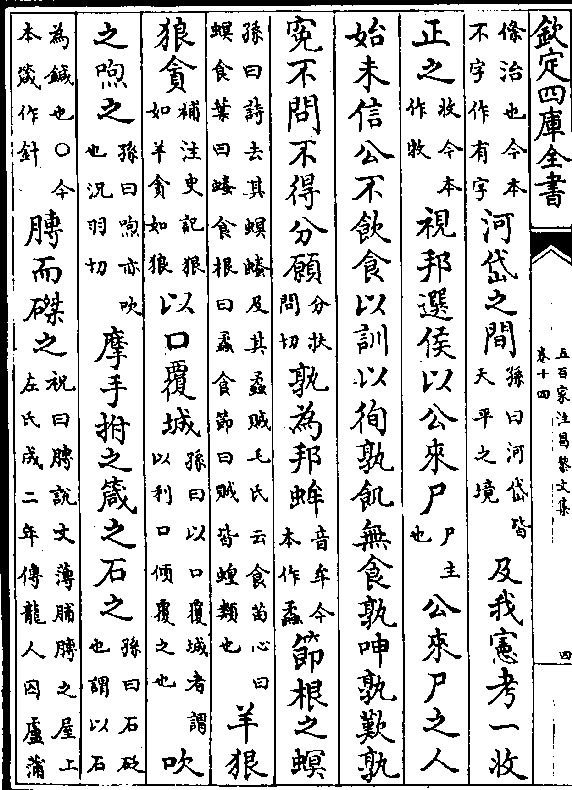 欽定四庫全書
五百家注昌黎文集
卷十四
四
條治也今本不字作有字河岱之間孫曰河岱皆天平之境及我憲考一收
正之收今本作牧視邦選侯以公來尸尸主也公來尸之人
始未信公不飲食以訓以徇孰飢無食孰呻孰歎孰
寃不問不得分願分扶問切孰為邦蛑音牟今本作蟊節根之螟
孫曰詩去其螟螣及其蟊賊毛氏云食苗心曰螟食葉曰螣食根曰蟊食節曰賊皆蝗類也羊狠
狼貪補注史記狠如羊貪如狼以口覆城孫曰以口覆城者謂以利口傾覆之也吹
之喣之孫曰喣亦吹也况羽切摩手拊之箴之石之孫曰石砭也謂以石
為鍼也○今本箴作針膊而磔之祝曰膊說文薄脯膊之屋上左氏成二年傳龍人囚盧蒲